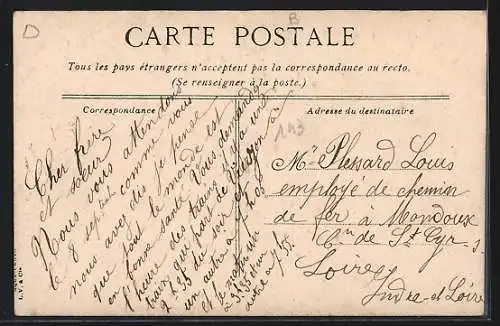 D
B
CARTE POSTALE
Tous les pays étrangers n'acceptent pas la correspondance au recto.
(Se renseigner à la poste.)
Correspondance
Adresse du destinataire
143
Cher frère
et sœur
Nous vous attendons
le 8 sept comme vous
nous avez dis je pense
que tout le monde est
en bonne santé Vous demandez
l'heure des trains il y a un
train qui part de à
2 35 du soir
un autre a 7 h 05
et le matin un
2 h 35 et un
autre a 7 h 55.
Mr Plessard Louis
employé de chemin
de fer à Mondoux
Cne de St Cyr s
Loire
Indre et Loire
L.V. & Cie